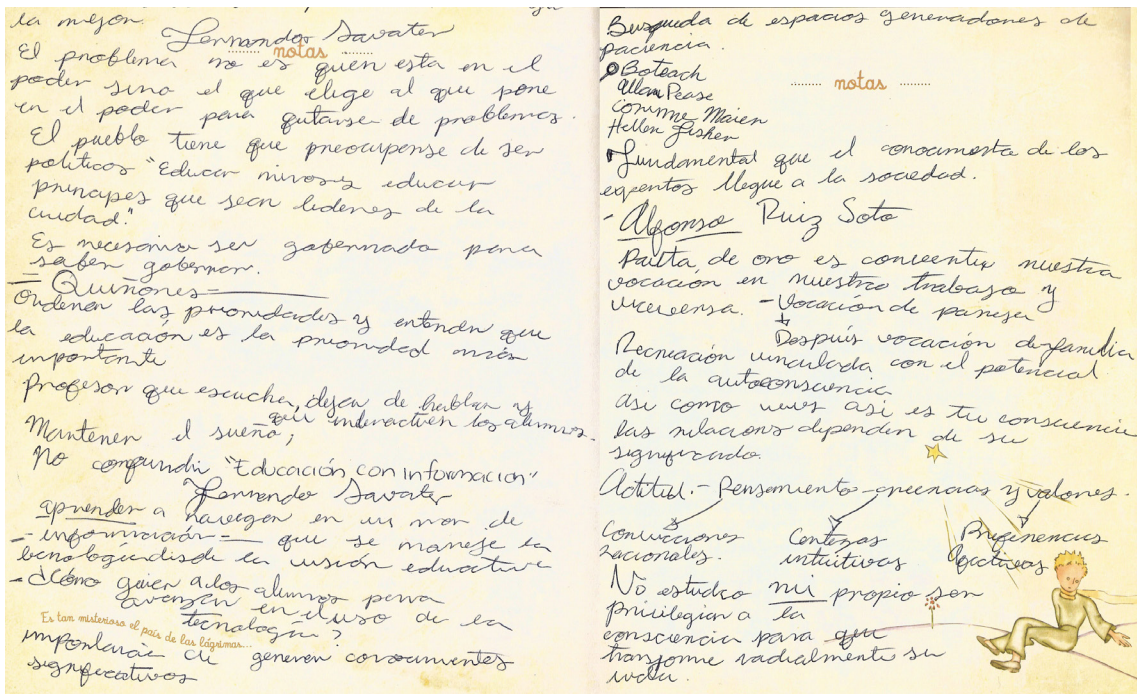 la mejor.
Fernando Savater
notas
El problema no es quien esta en el
poder sino el que elige al que pone
en el poder para quitarse de problemas.
El pueblo tiene que preocuparse de ser
politicos "Educar niños y educar
principes que sean lideres de la
ciudad."
Es necesario ser gobernado para
saber gobernar.
= Quiñones =
Ordenar las prioridades y entender que
la educación es la prioridad más
importante
Profesor que escucha, dejar de hablar y
que interactúen los alumnos.
Mantener el sueño;
No confundir "Educación con informacion"
Fernando Savater
aprender a navegar en un mar de
- información - que se maneje la
tecnología desde la visión educativa
- ¿Cómo guiar a los alumnos para
avanzar en el uso de la
tecnología?
Es tan misterioso el país de las lágrimas...
importancia de generen conocimientos
significativos
Busqueda de espacios generadores de
paciencia.
notas
Boteach
Allan Pease
Corinne Maier
Hellen Fisher
Fundamental que el conocimiento de los
expertos llegue a la sociedad.
- Alfonso Ruiz Soto
Pauta de oro es convertir nuestra
vocación en nuestro trabajo y
viceversa. - Vocación de pareja
Después vocación de familia
Recreación vinculada con el potencial
de la autoconsciencia
asi como vives asi es tu consciencia
las relaciones dependen de su
significado.
Actitud.- Pensamiento - creencias y valores.
Convicciones Certezas Preferencias
racionales. intuitivas afectivas
No estudio mi propio ser
privilegiar a la
consciencia para que
transforme radicalmente su
vida.